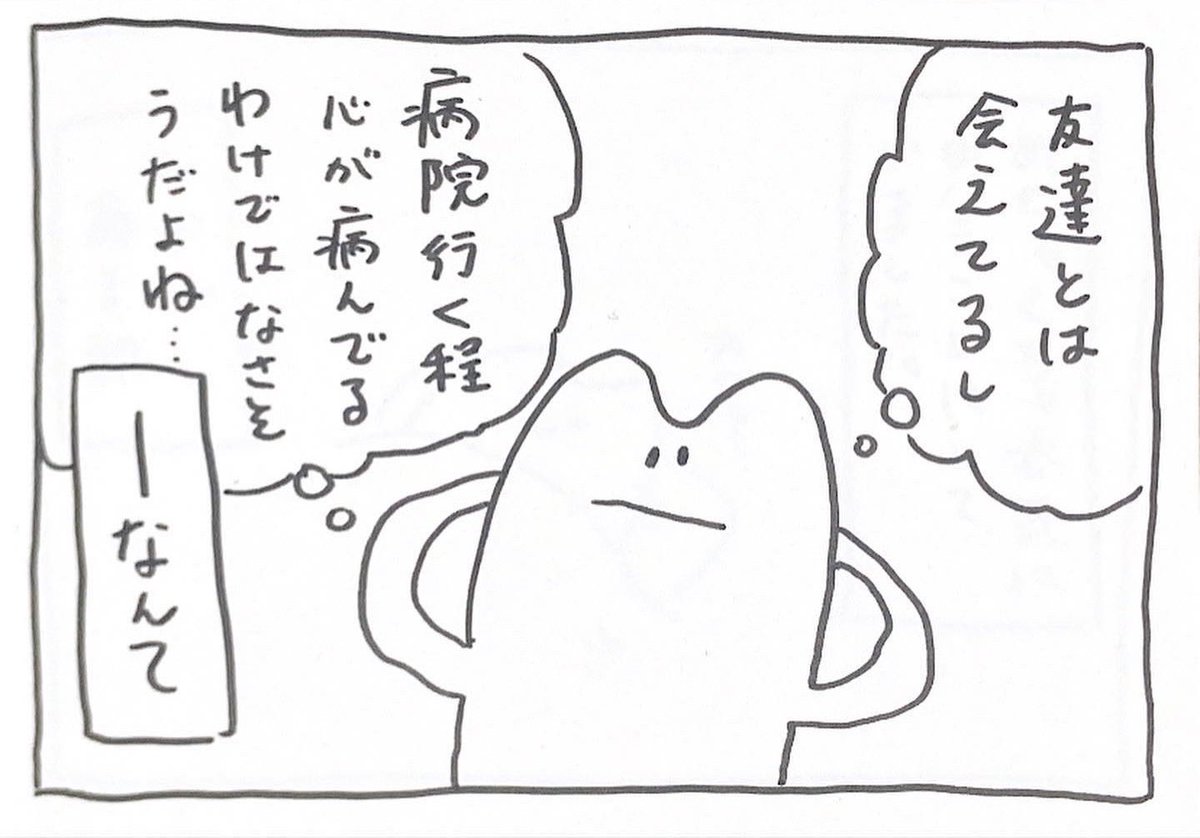 友達とは
会えてるし
病院行く程
心が病んでる
わけではなさそ
うだよね…
ーなんて